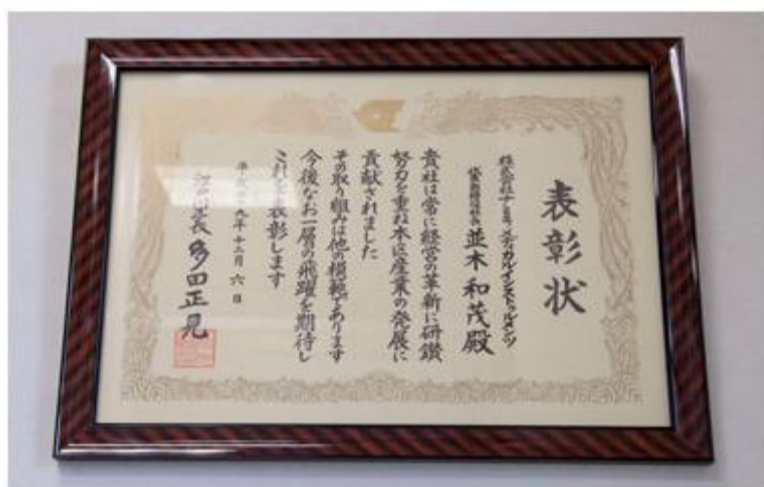 表彰状
株式会社ナミキ・メディカルインストゥルメンツ
代表取締役社長 並木和茂殿
貴社は常に経営の革新に研鑽
努力を重ね本区産業の発展に
貢献されました
その取り組みは他の模範であります
今後なお一層の飛躍を期待し
これを表彰します
平成十九年十二月六日
江戸川区長 多田正見